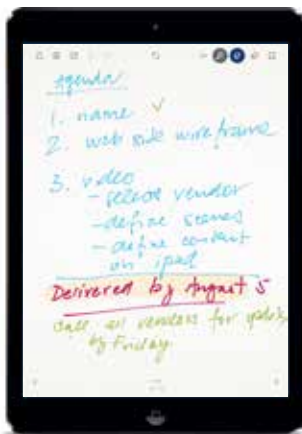 Agenda
1. name ✓
2. web side wireframe
3. video
- select vendor
- define scenes
- define content
on ipad
Delivered by August 5
call all vendors for
by Friday